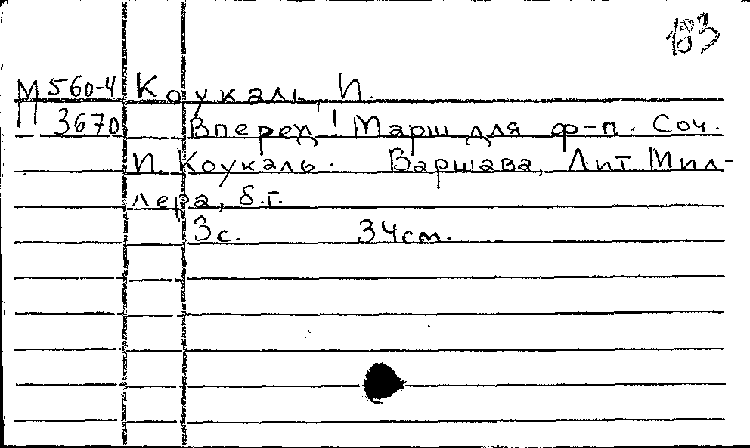 183
М 560-4 Коукаль, И.
П 3670 Вперед! Марш для ф-п. Соч.
И. Коукаль. Варшава, Лит Мил-
лера, б.г.
3с. 34см.